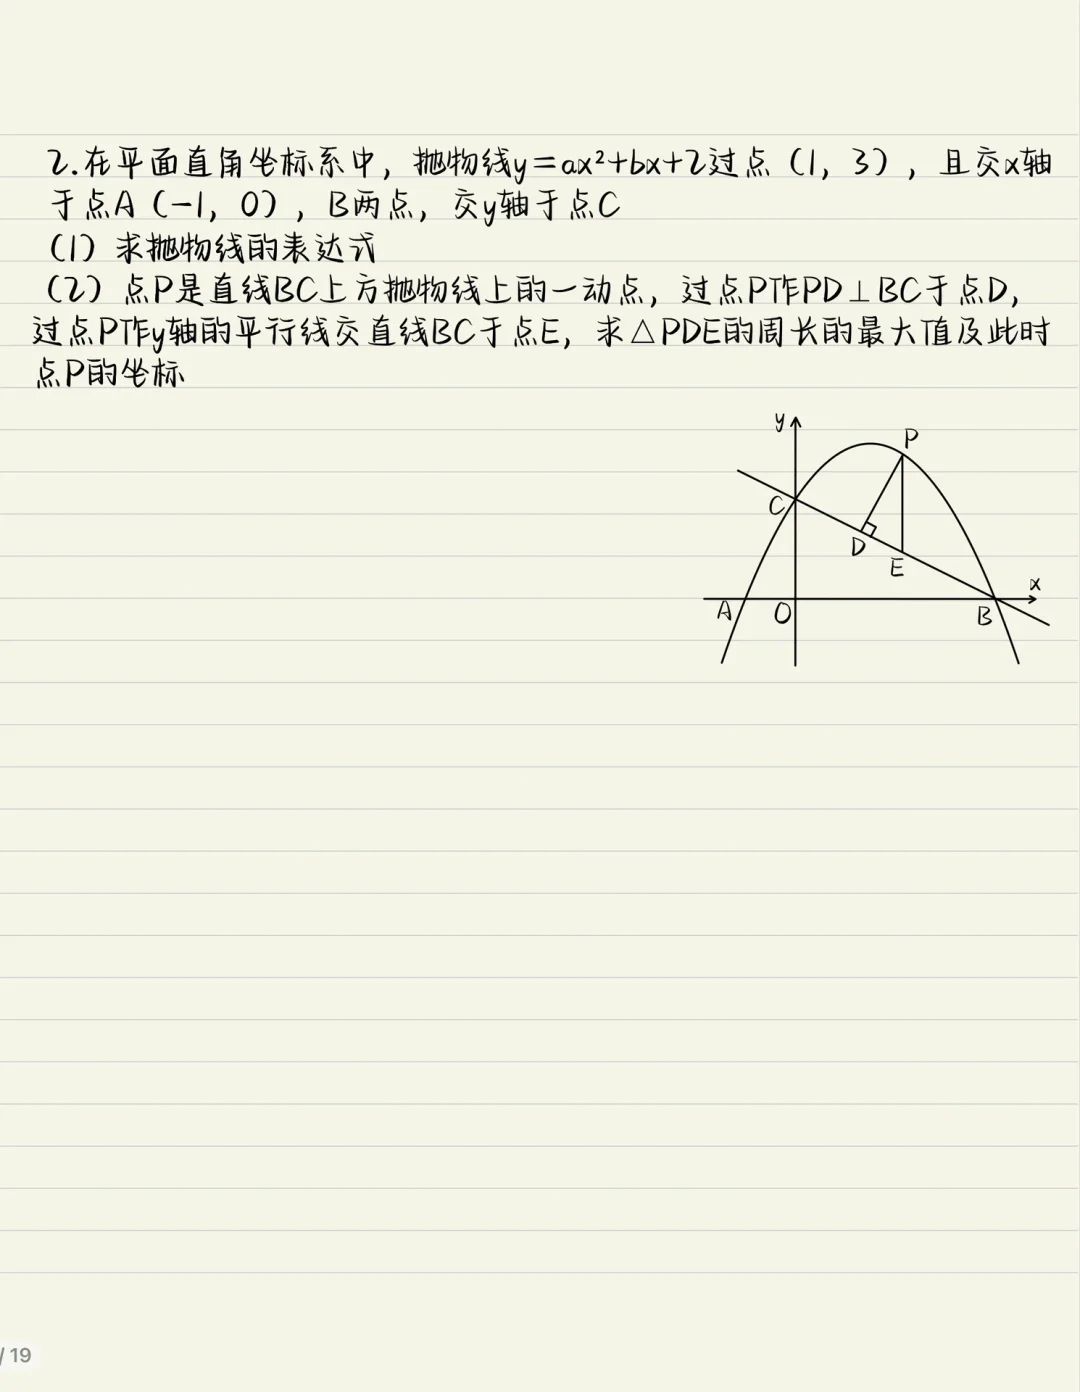 2.在平面直角坐标系中，抛物线y=ax²+bx+2过点（1，3），且交x轴
于点A（-1，0），B两点，交y轴于点C
（1）求抛物线的表达式
（2）点P是直线BC上方抛物线上的一动点，过点P作PD⊥BC于点D，
过点P作y轴的平行线交直线BC于点E，求△PDE的周长的最大值及此时
点P的坐标
y
P
C
D
E
x
A
O
B
/19